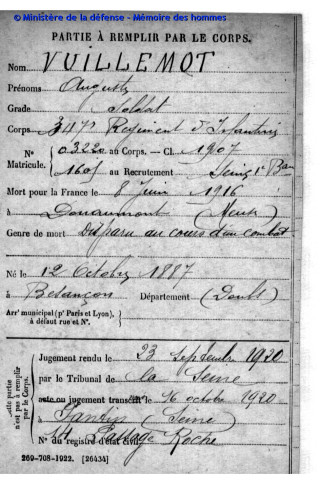 © Ministère de la défense - Mémoire des hommes
PARTIE À REMPLIR PAR LE CORPS.
Nom VUILLEMOT
Prénoms Auguste
Grade Soldat
Corps 347e Régiment d'Infanterie
N° 03220 au Corps. — Cl. 1907
Matricule. 1601 au Recrutement Seine 1er Bau
Mort pour la France le 8 Juin 1916
à Douaumont (Meuse)
Genre de mort Disparu au cours d'un combat
Né le 12 Octobre 1887
à Besançon Département (Doubs)
Arrt municipal (pr Paris et Lyon),
à défaut rue et N°.
Cette partie
n'est pas à remplir
par le Corps.
Jugement rendu le 23 Septembre 1920
par le Tribunal de la Seine
acte ou jugement transcrit le 16 octobre 1920
à Pantin (Seine)
N° du registre d'état civil 14 Passage Roche
269-708-1922. [26434]